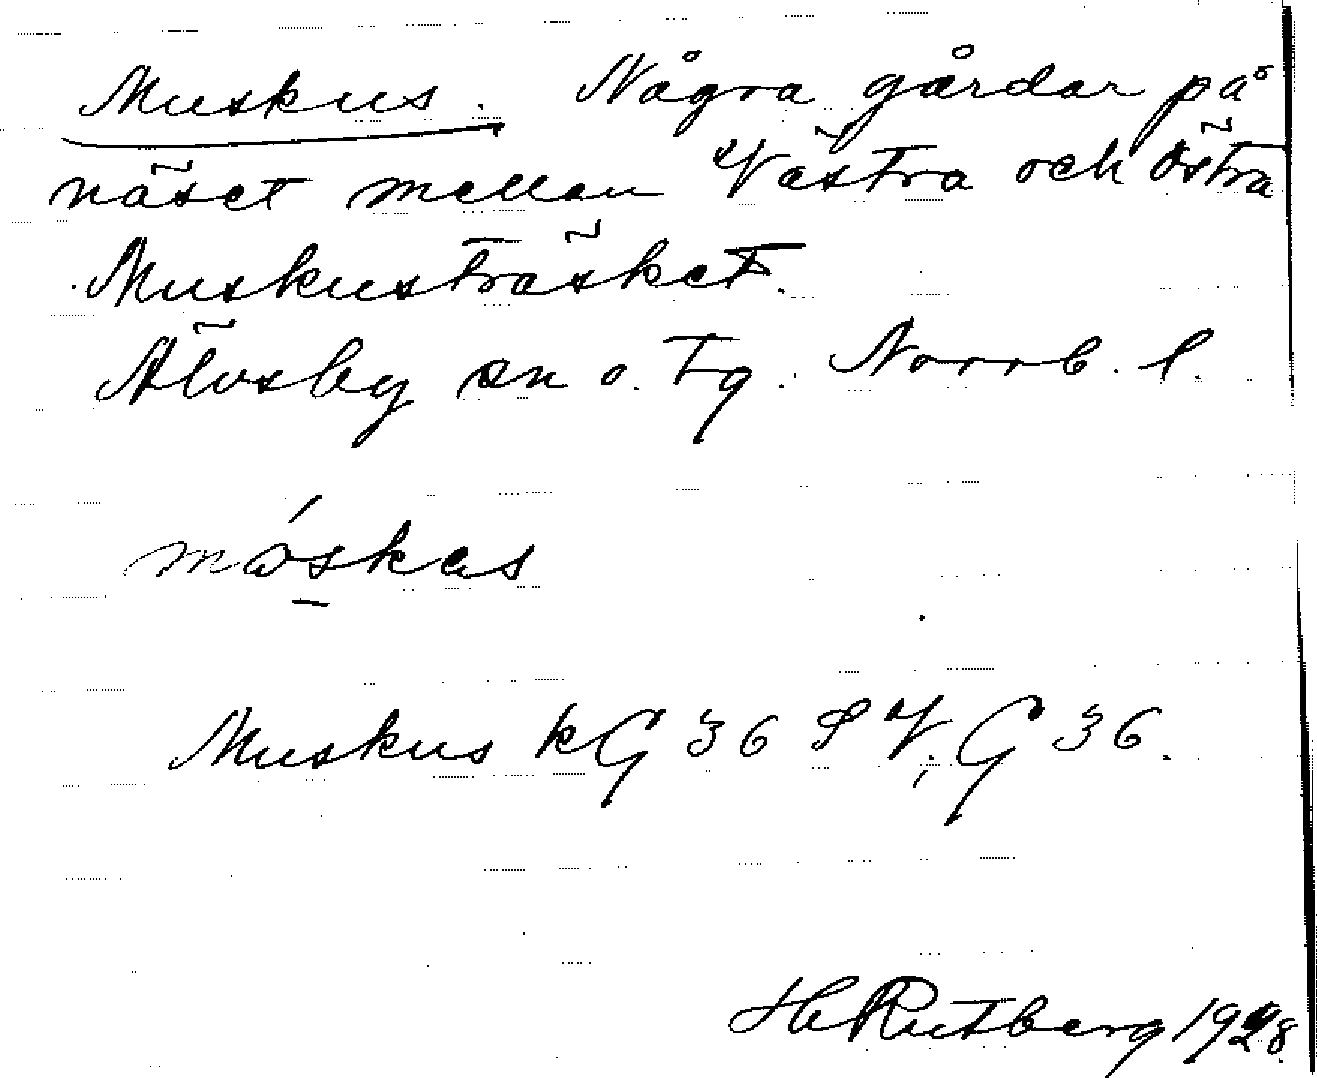 Muskus. Några gårdar på
näset mellan Västra och Östra
Muskusträsket.
Älvsby sn o. tg. Norrb. l.
móskas
Muskus kG 36 SV, G 36.
H Rutberg 1928